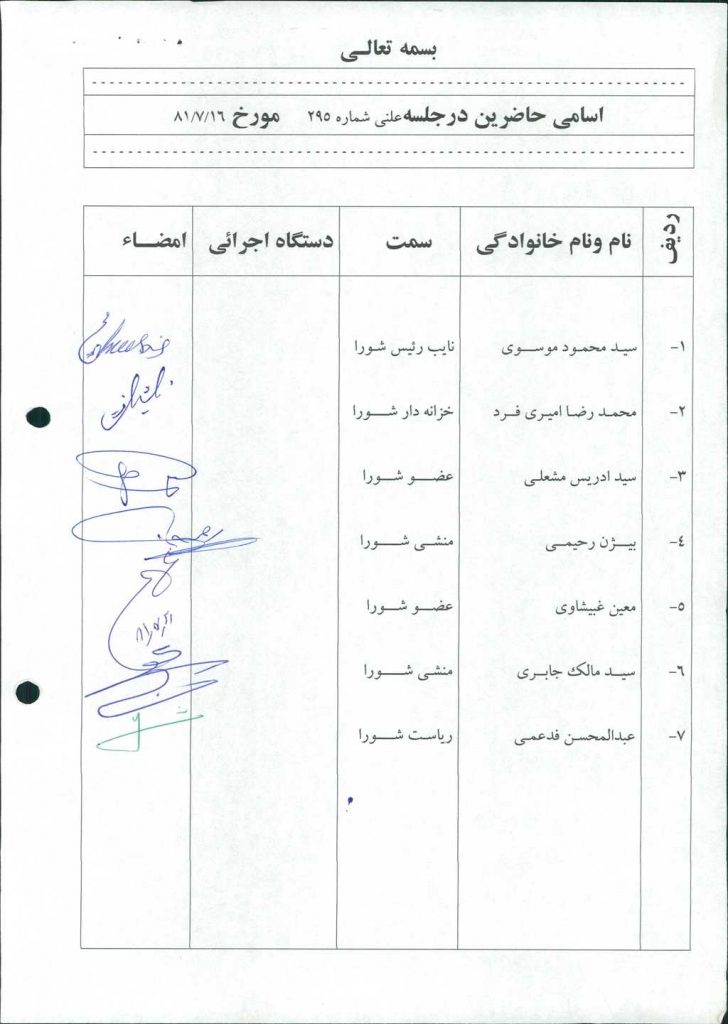 بسمه تعالی
اسامی حاضرین درجلسه علنی شماره ۲۹۵ مورخ ۸۱/۷/۱۶
ردیف نام ونام خانوادگی سمت دستگاه اجرائی امضاء
۱- سید محمود موسوی نایب رئیس شورا
۲- محمد رضا امیری فرد خزانه دار شورا
۳- سید ادریس مشعلی عضو شورا
۴- بیژن رحیمی منشی شورا
۵- معین غبیشاوی عضو شورا
۶- سید مالک جابری منشی شورا
۷- عبدالمحسن فدعمی ریاست شورا